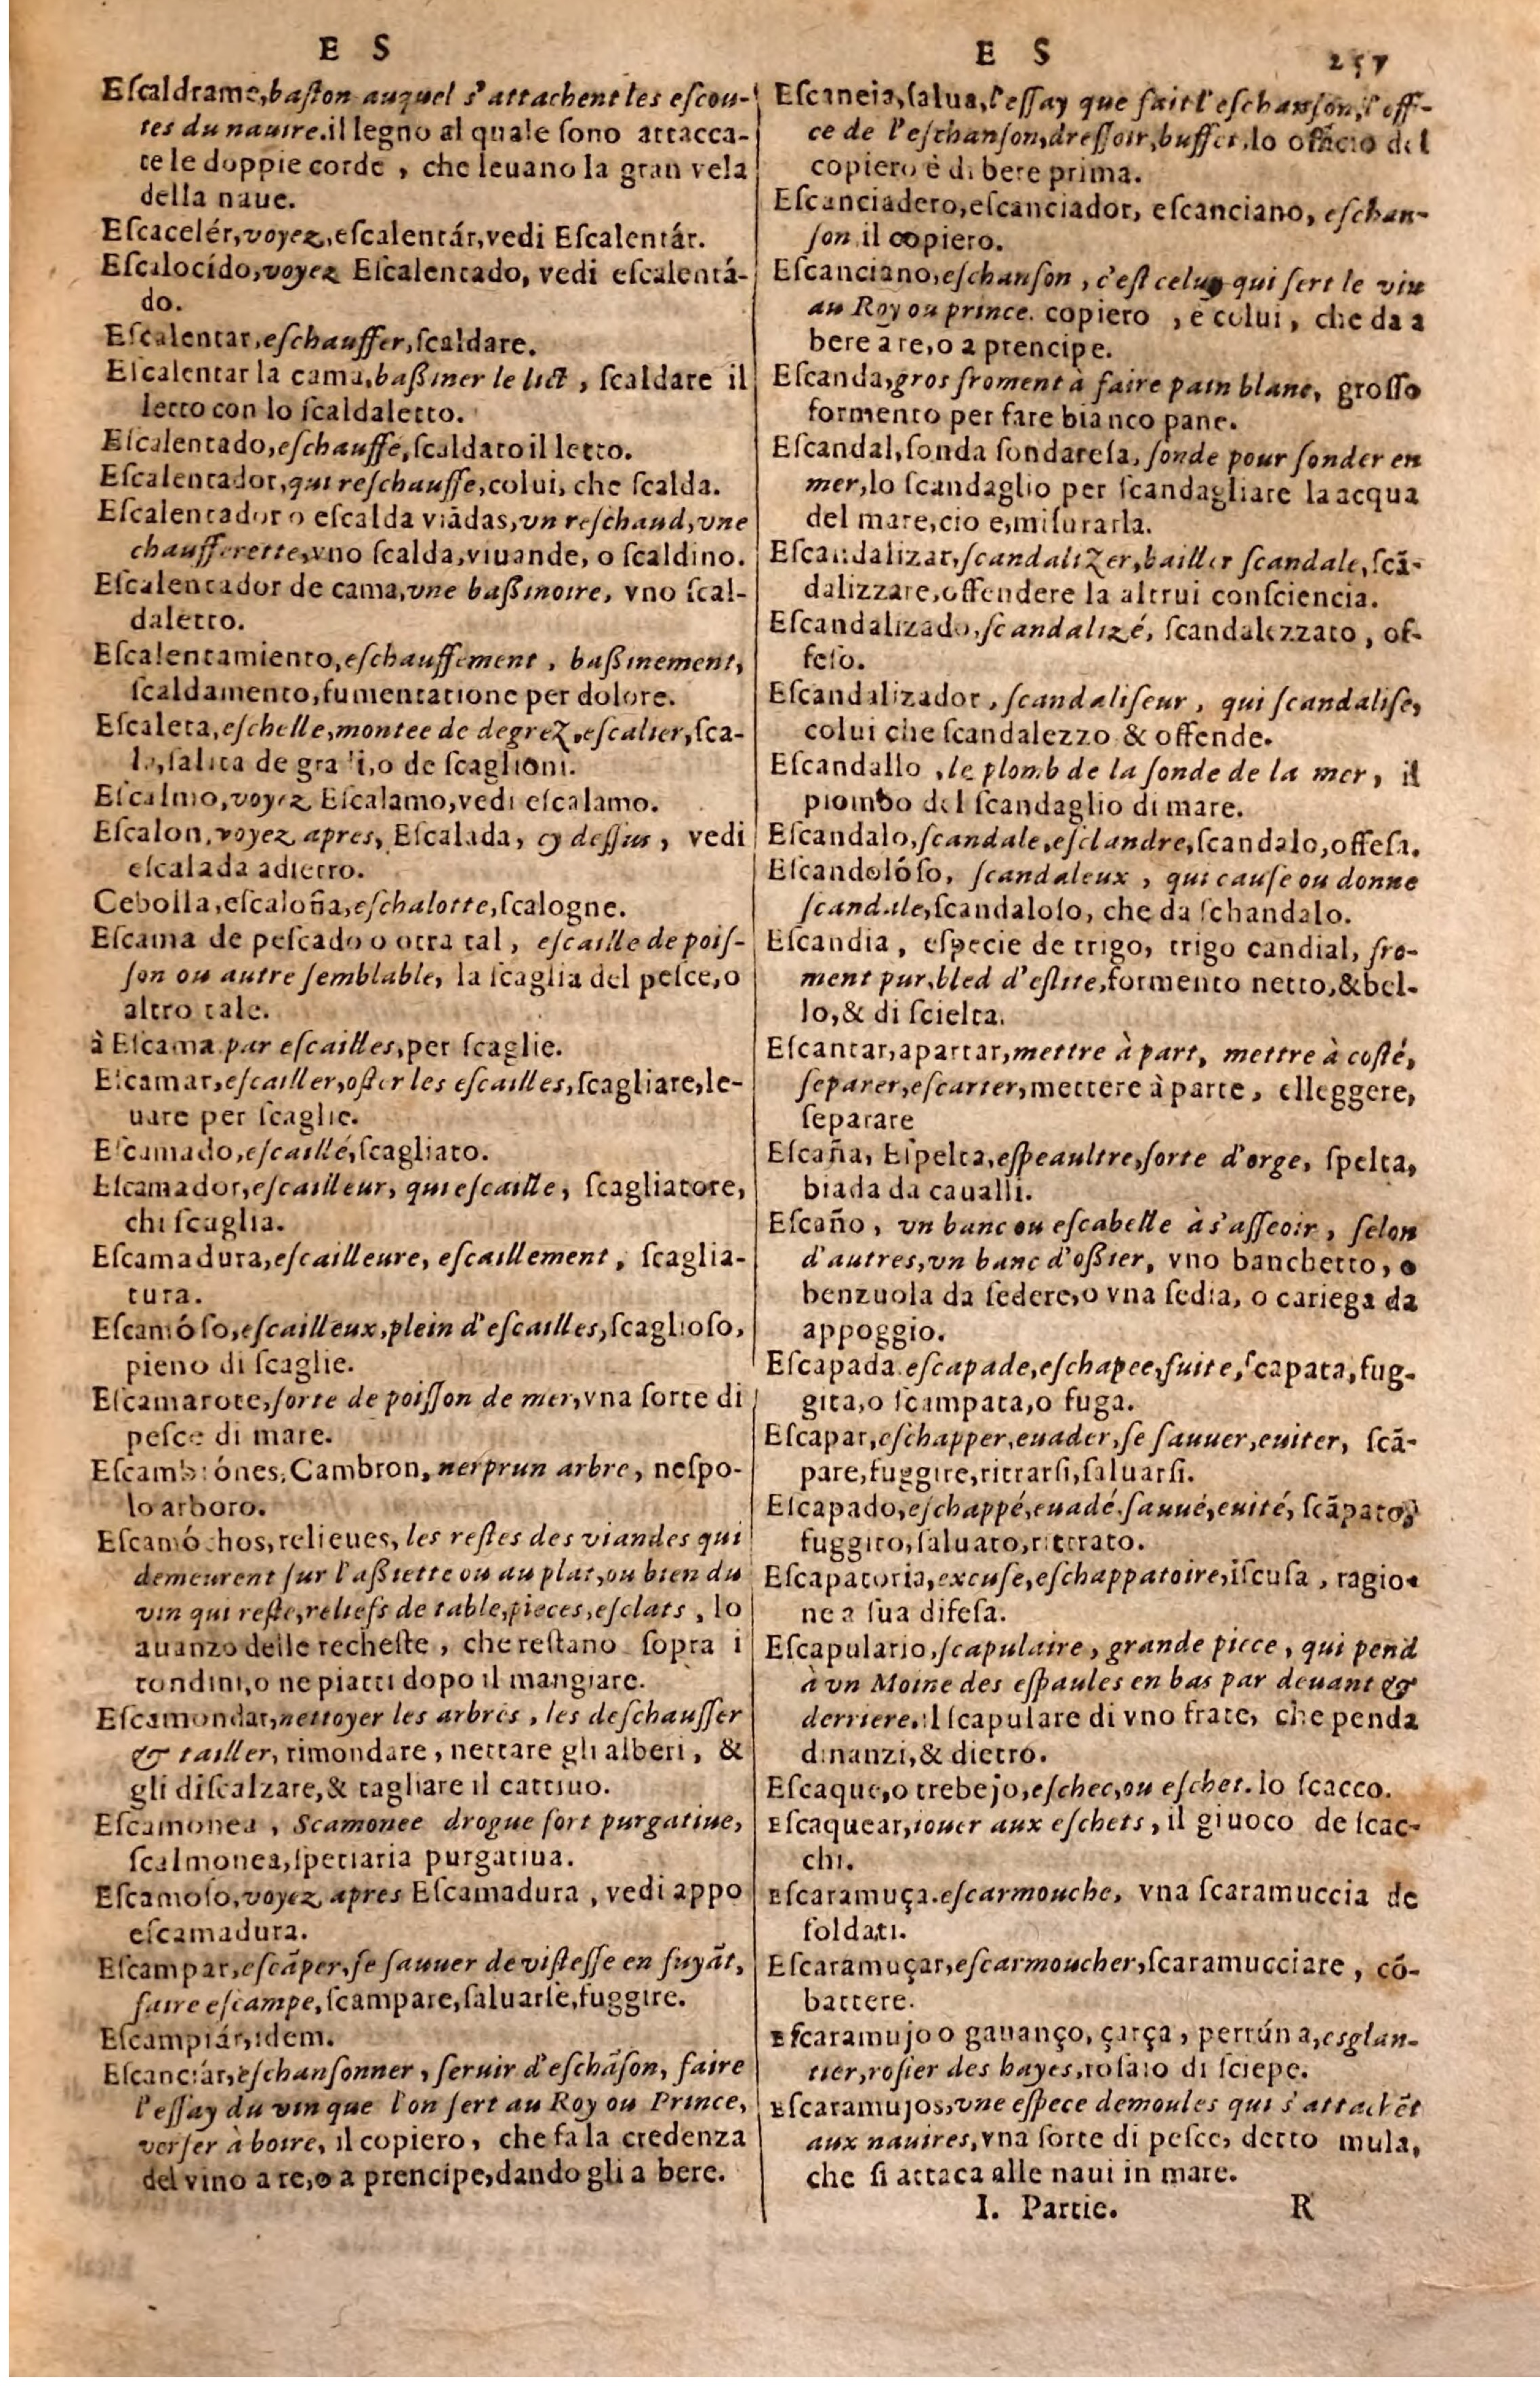 E S
Eſcaldrame, baſton auquel s'attachent les eſcou-
tes du nauire. il legno al quale ſono attacca-
te le doppie corde , che leuano la gran vela
della naue.
Eſcacelér, voyez, eſcalentár, vedi Eſcalentár.
Eſcalocído, voyez Eſcalentado, vedi eſcalentá-
do.
Eſcalentar, eſchauffer, ſcaldare.
Eſcalentar la cama, baßiner le lict , ſcaldare il
letto con lo ſcaldaletto.
Eſcalentado, eſchauffé, ſcaldato il letto.
Eſcalentador, qui reſchauffe, colui, che ſcalda.
Eſcalentador o eſcalda viãdas, vn reſchaud, vne
chaufferette, vno ſcalda, viuande, o ſcaldino.
Eſcalentador de cama, vne baßinoire, vno ſcal-
daletto.
Eſcalentamiento, eſchauffement , baßinement,
ſcaldamento, fumentatione per dolore.
Eſcaleta, eſchelle, montee de degrez, eſcalier, ſca-
la, ſalita de gradi, o de ſcaglioni.
Eſcalmo, voyez Eſcalamo, vedi eſcalamo.
Eſcalon, voyez apres, Eſcalada, cy deſſus , vedi
eſcalada adietro.
Cebolla, eſcaloña, eſchalotte, ſcalogne.
Eſcama de peſcado o otra tal , eſcaille de poiſ-
ſon ou autre ſemblable, la ſcaglia del peſce, o
altro tale.
à Eſcama par eſcailles, per ſcaglie.
Eſcamar, eſcailler, oſter les eſcailles, ſcagliare, le-
uare per ſcaglie.
Eſcamado, eſcaillé, ſcagliato.
Eſcamador, eſcailleur, qui eſcaille, ſcagliatore,
chi ſcaglia.
Eſcamadura, eſcailleure, eſcaillement , ſcaglia-
tura.
Eſcamóſo, eſcailleux, plein d'eſcailles, ſcaglioſo,
pieno di ſcaglie.
Eſcamarote, ſorte de poiſſon de mer, vna ſorte di
peſce di mare.
Eſcambrónes, Cambron, nerprun arbre, neſpo-
lo arboro.
Eſcamóchos, relieues, les reſtes des viandes qui
demeurent ſur l'aßiette ou au plat, ou bien du
vin qui reſte, reliefs de table, pieces, eſclats , lo
auanzo delle recheſte , che reſtano ſopra i
tondini, o ne piatti dopo il mangiare.
Eſcamondar, nettoyer les arbres , les deſchauſſer
& tailler, rimondare , nettare gli alberi , &
gli diſcalzare, & tagliare il cattiuo.
Eſcamonea , Scamonee drogue fort purgatiue,
ſcalmonea, ſpetiaria purgatiua.
Eſcamoſo, voyez apres Eſcamadura , vedi appo
eſcamadura.
Eſcampar, eſcãper, ſe ſauuer de viſteſſe en fuyãt,
faire eſcampe, ſcampare, ſaluarſe, fuggire.
Eſcampiár, idem.
Eſcanciár, eſchanſonner , ſeruir d'eſchãſon, faire
l'eſſay du vin que l'on ſert au Roy ou Prince,
verſer à boire, il copiero, che fa la credenza
del vino a re, o a prencipe, dando gli a bere.
E S 257
Eſcaneia, ſalua, l'eſſay que fait l'eſchanſon, l'offi-
ce de l'eſchanſon, dreſſoir, buffet, lo officio del
copiero è di bere prima.
Eſcanciadero, eſcanciador, eſcanciano, eſchan-
ſon il copiero.
Eſcanciano, eſchanſon , c'eſt celuy qui ſert le vin
au Roy ou prince. copiero , è colui , che da a
bere a re, o a prencipe.
Eſcanda, gros froment à faire pain blanc, groſſo
formento per fare bianco pane.
Eſcandal, ſonda ſondareſa, ſonde pour ſonder en
mer, lo ſcandaglio per ſcandagliare la acqua
del mare, cio e, miſurarla.
Eſcandalizar, ſcandalizer, bailler ſcandale, ſcã-
dalizzare, offendere la altrui conſciencia.
Eſcandalizado, ſcandalizé, ſcandalezzato , of-
feſo.
Eſcandalizador , ſcandaliſeur , qui ſcandaliſe,
colui che ſcandalezzo & offende.
Eſcandallo , le plomb de la ſonde de la mer, il
piombo del ſcandaglio di mare.
Eſcandalo, ſcandale, eſclandre, ſcandalo, offeſa.
Eſcandolóſo, ſcandaleux , qui cauſe ou donne
ſcandale, ſcandaloſo, che da ſchandalo.
Eſcandia , eſpecie de trigo, trigo candial, fro-
ment pur, bled d'eſlite, formento netto, & bel-
lo, & di ſcielta.
Eſcantar, apartar, mettre à part, mettre à coſté,
ſeparer, eſcarter, mettere à parte , elleggere,
ſeparare
Eſcaña, Eſpelta, eſpeaultre, ſorte d'orge, ſpelta,
biada da caualli.
Eſcaño , vn banc ou eſcabelle à s'aſſeoir , ſelon
d'autres, vn banc d'oßier, vno banchetto, o
benzuola da ſedere, o vna ſedia, o cariega da
appoggio.
Eſcapada eſcapade, eſchapee, fuite, ſcapata, fug-
gita, o ſcampata, o fuga.
Eſcapar, eſchapper, euader, ſe ſauuer, euiter, ſcã-
pare, fuggire, ritrarſi, ſaluarſi.
Eſcapado, eſchappé, euadé, ſauué, euité, ſcãpato,
fuggito, ſaluato, ritrato.
Eſcapatoria, excuſe, eſchappatoire, iſcuſa , ragio-
ne a ſua difeſa.
Eſcapulario, ſcapulaire , grande piece , qui pend
à vn Moine des eſpaules en bas par deuant &
derriere. il ſcapulare di vno frate, che penda
dinanzi, & dietro.
Eſcaque, o trebejo, eſchec, ou eſchet. lo ſcacco.
Eſcaquear, iouer aux eſchets , il giuoco de ſcac-
chi.
Eſcaramuça. eſcarmouche, vna ſcaramuccia de
ſoldati.
Eſcaramuçar, eſcarmoucher, ſcaramucciare , cõ-
battere.
Eſcaramujo o gauanço, çarça , perrúna, esglan-
tier, roſier des hayes, roſaio di ſciepe.
Eſcaramujos, vne eſpece de moules qui s'attachẽt
aux nauires, vna ſorte di peſce, detto mula,
che ſi attaca alle naui in mare.
I. Partie. R